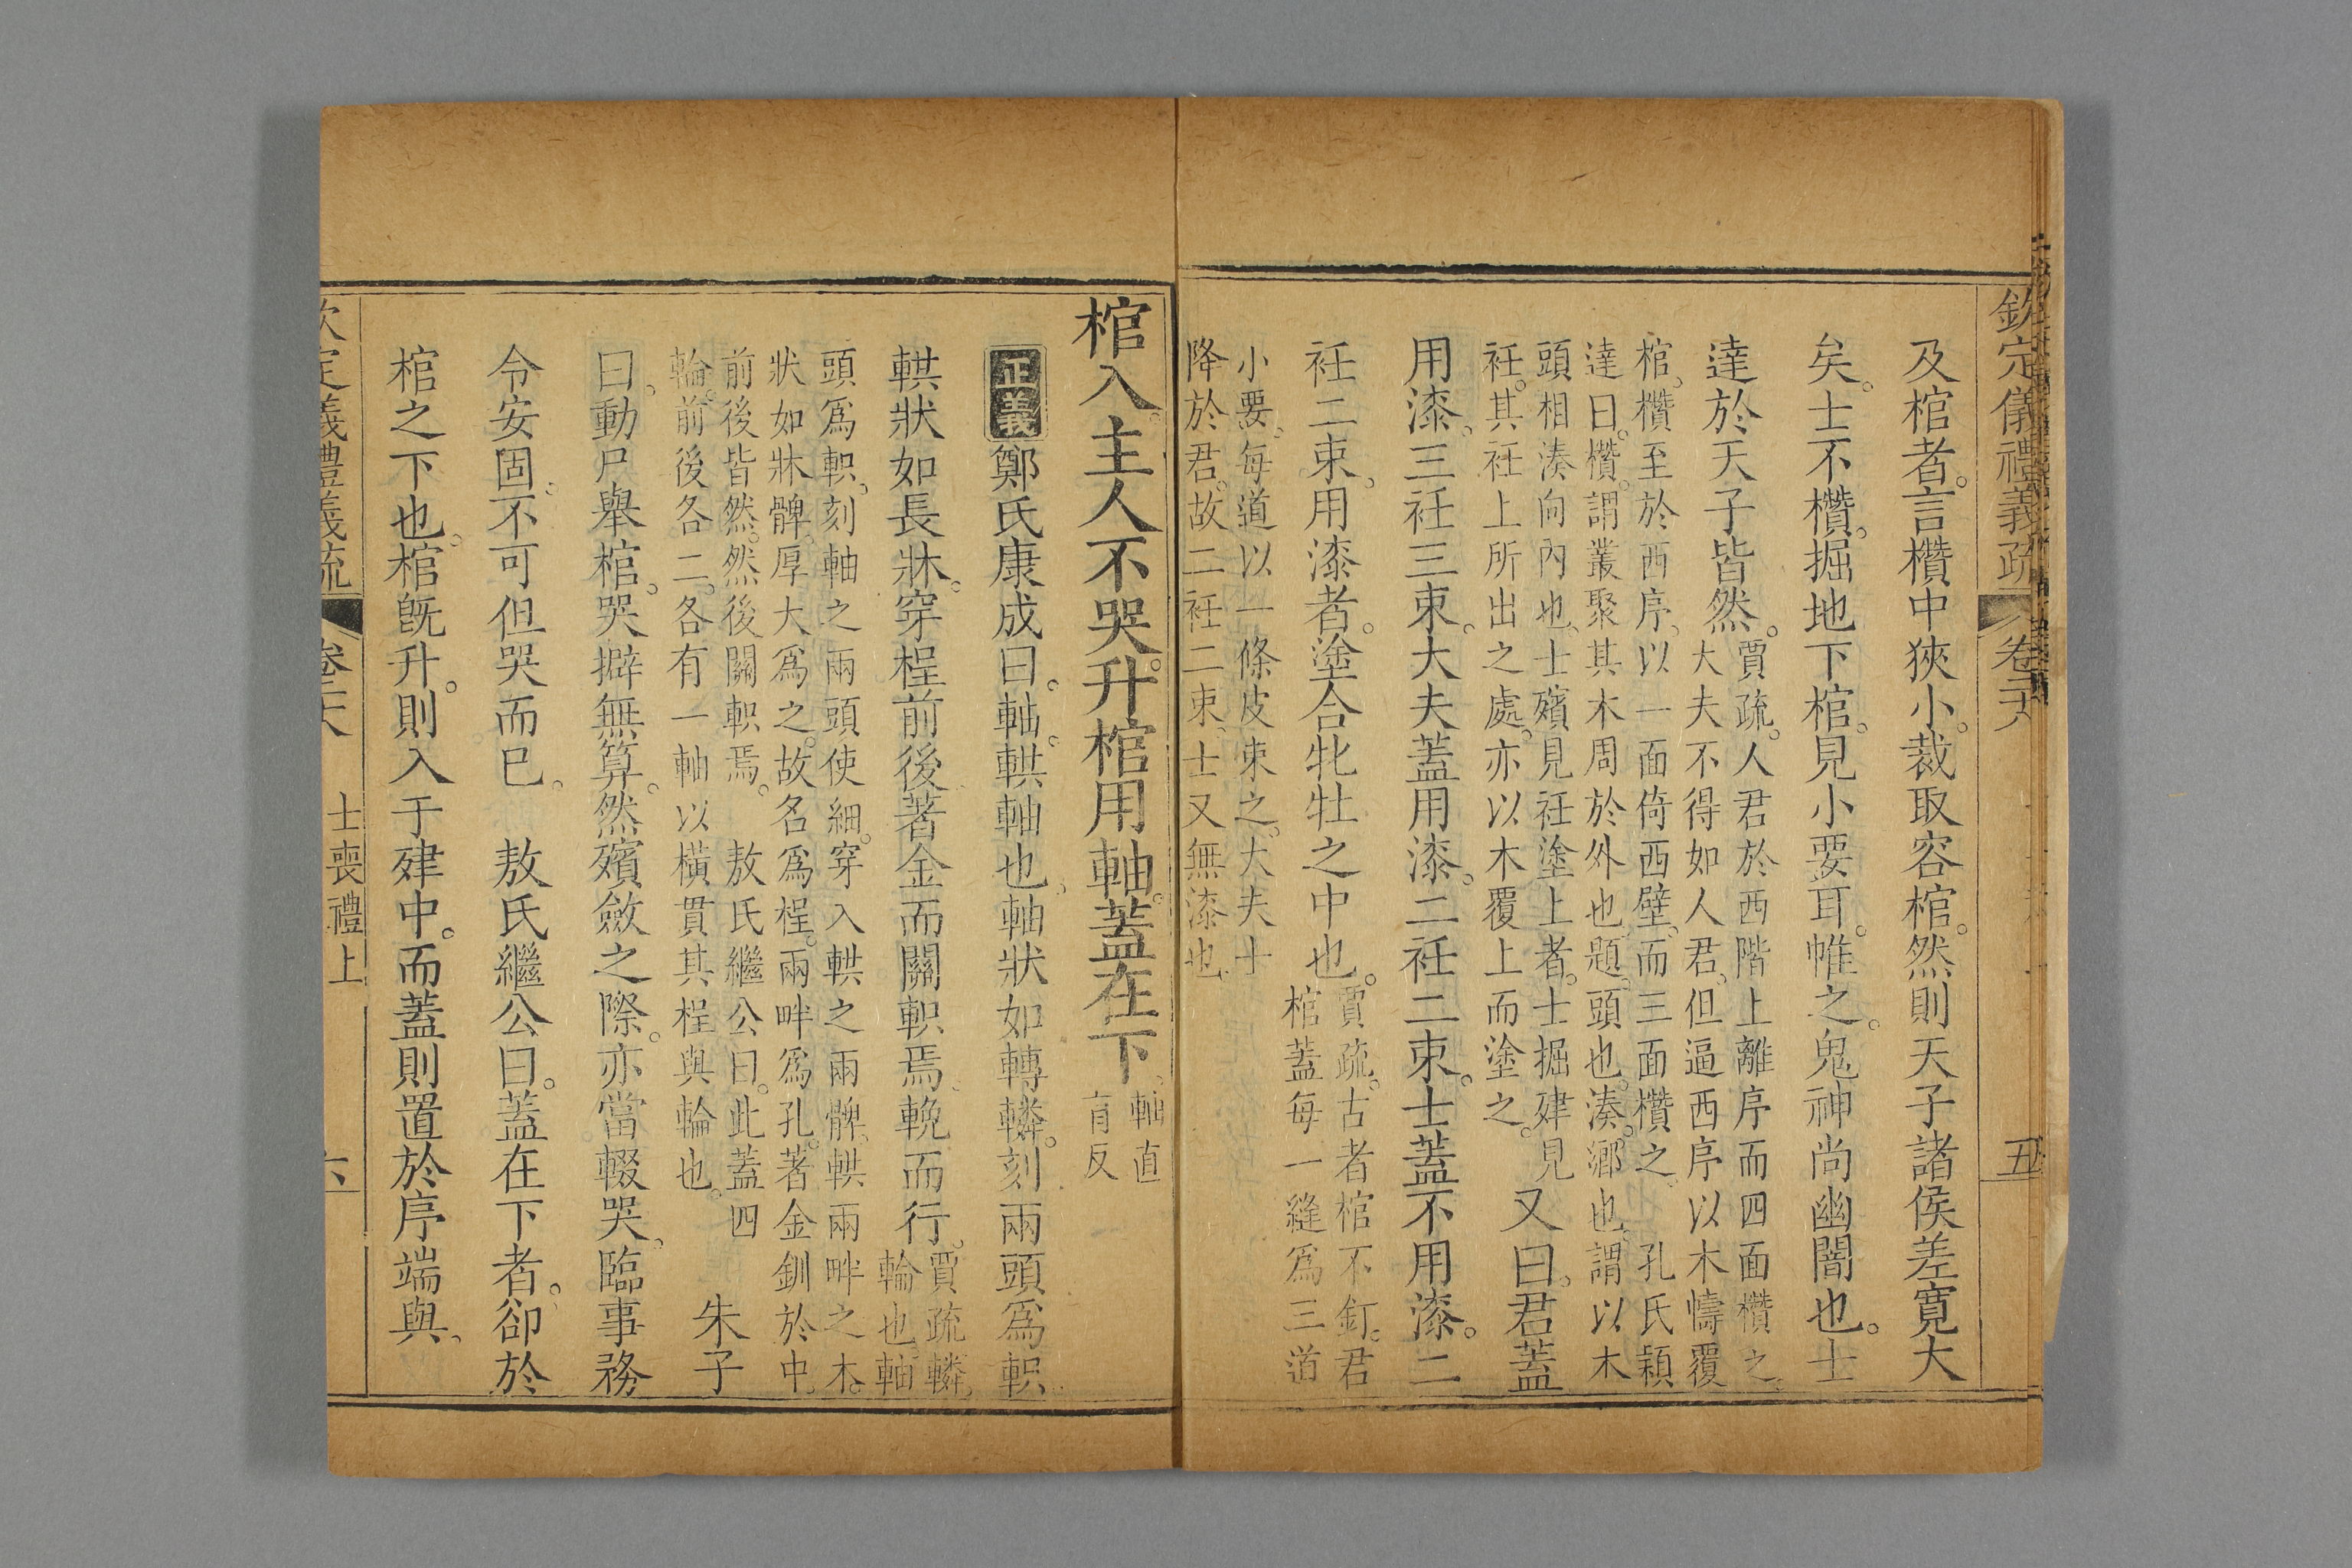 欽定儀禮義疏 卷二十八 五
及棺者言欑中狹小裁取容棺然則天子諸侯差寬大
矣士不欑掘地下棺見小要耳帷之鬼神尚幽闇也士
達於天子皆然
賈疏人君於西階上離序而四面欑之
大夫不得如人君但逼西序以木幬覆
棺欑至於西序以一面倚西壁而三面欑之 孔氏穎
達曰欑謂叢聚其木周於外也題頭也湊鄉也謂以木
頭相湊向內也士殯見衽塗上者士掘肂見
衽其衽上所出之處亦以木覆上而塗之
又曰君蓋
用漆三衽三束大夫蓋用漆二衽二束士蓋不用漆二
衽二束用漆者塗合牝牡之中也
賈疏古者棺不釘君
棺蓋每一縫為三道
小要每道以一條皮束之大夫士
降於君故二衽二束士又無漆也
棺入主人不哭升棺用軸蓋在下
軸直
育反
正義 鄭氏康成曰軸輁軸也軸狀如轉轔刻兩頭為軹
輁狀如長牀穿桯前後著金而關軹焉輓而行
賈疏轔
輪也軸
頭為軹刻軸之兩頭使細穿入輁之兩髀輁兩畔之木
狀如牀髀厚大為之故名為桯兩畔為孔著金釧於中
前後皆然然後關軹焉 敖氏繼公曰此蓋四
輪前後各二各有一軸以橫貫其桯與輪也
朱子
曰動尸舉棺哭擗無算然殯斂之際亦當輟哭臨事務
令安固不可但哭而已 敖氏繼公曰蓋在下者卻於
棺之下也棺既升則入于肂中而蓋則置於序端與
欽定義禮義疏 卷二十八 士喪禮上 六